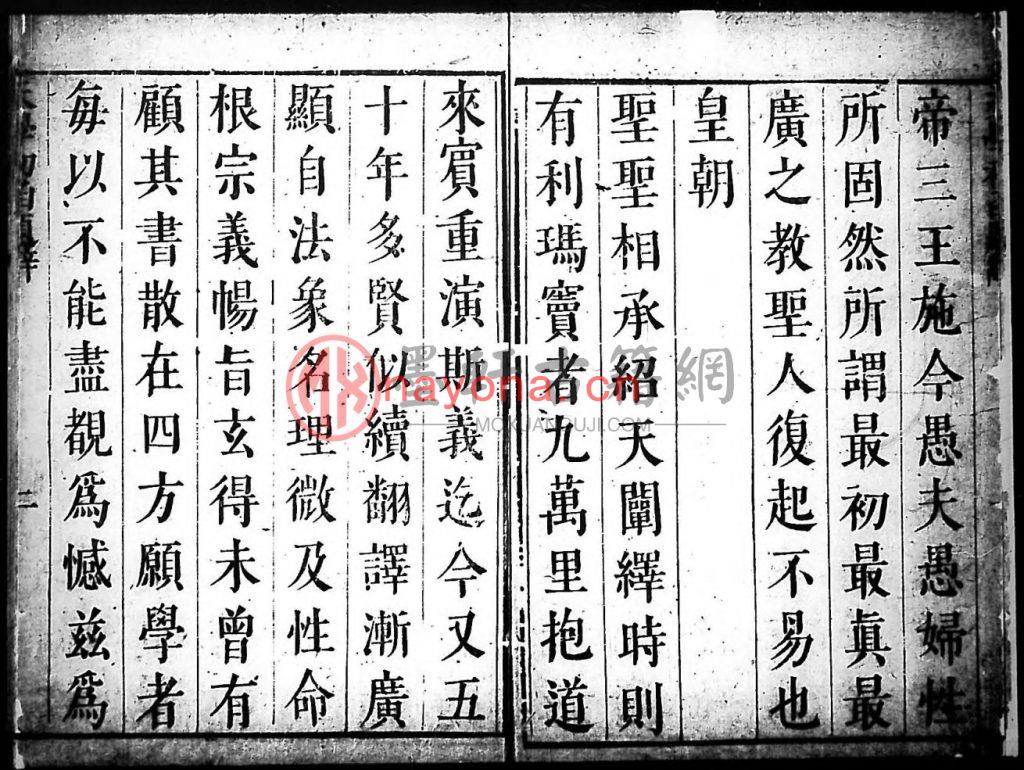 帝三王施今愚夫愚婦性
所固然所謂最初最眞最
廣之教聖人復起不易也
皇朝
聖聖相承紹天闡繹時則
有利瑪竇者九萬里抱道
來賓重演斯義迄今又五
十年多賢似續翻譯漸廣
顯自法象名理微及性命
根宗義暢旨玄得未曾有
顧其書散在四方願學者
每以不能盡覩爲憾兹爲
二
墨軒古籍網
nayona.cn